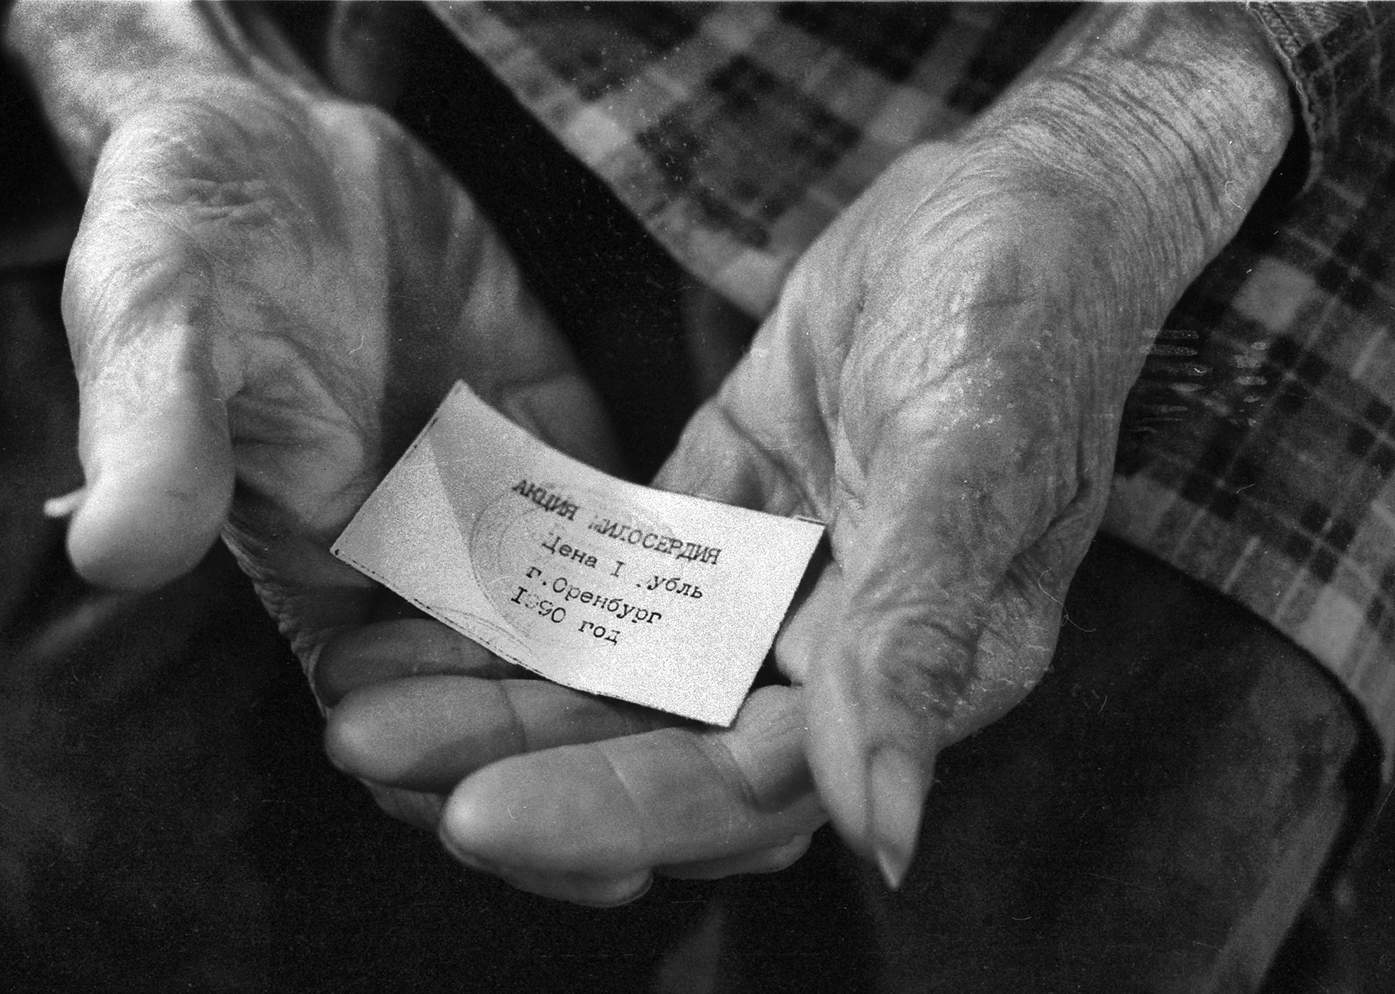 АКЦИЯ МИЛОСЕРДИЯ
Цена I рубль
г.Оренбург
I990 год